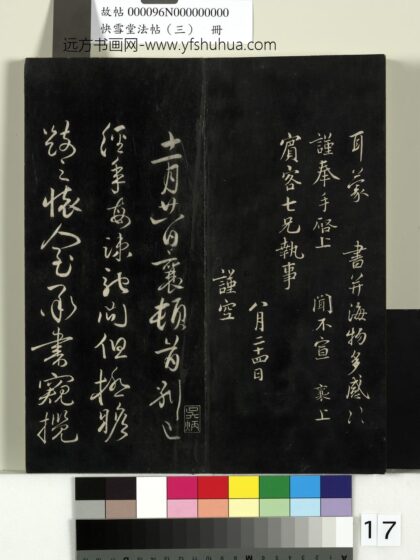 故帖 000096N000000000
快雪堂法帖（三） 冊
远方书画网-www.yfshuhua.com
耳蒙 書并海物多感〻
謹奉手啓上 聞不宣 襄上
賓客七兄執事
八月二十四日
謹空
十一月廿日襄頓首別已
經年每疎馳問但極瞻
跂之懷人至承書窺攬
吳炳
17